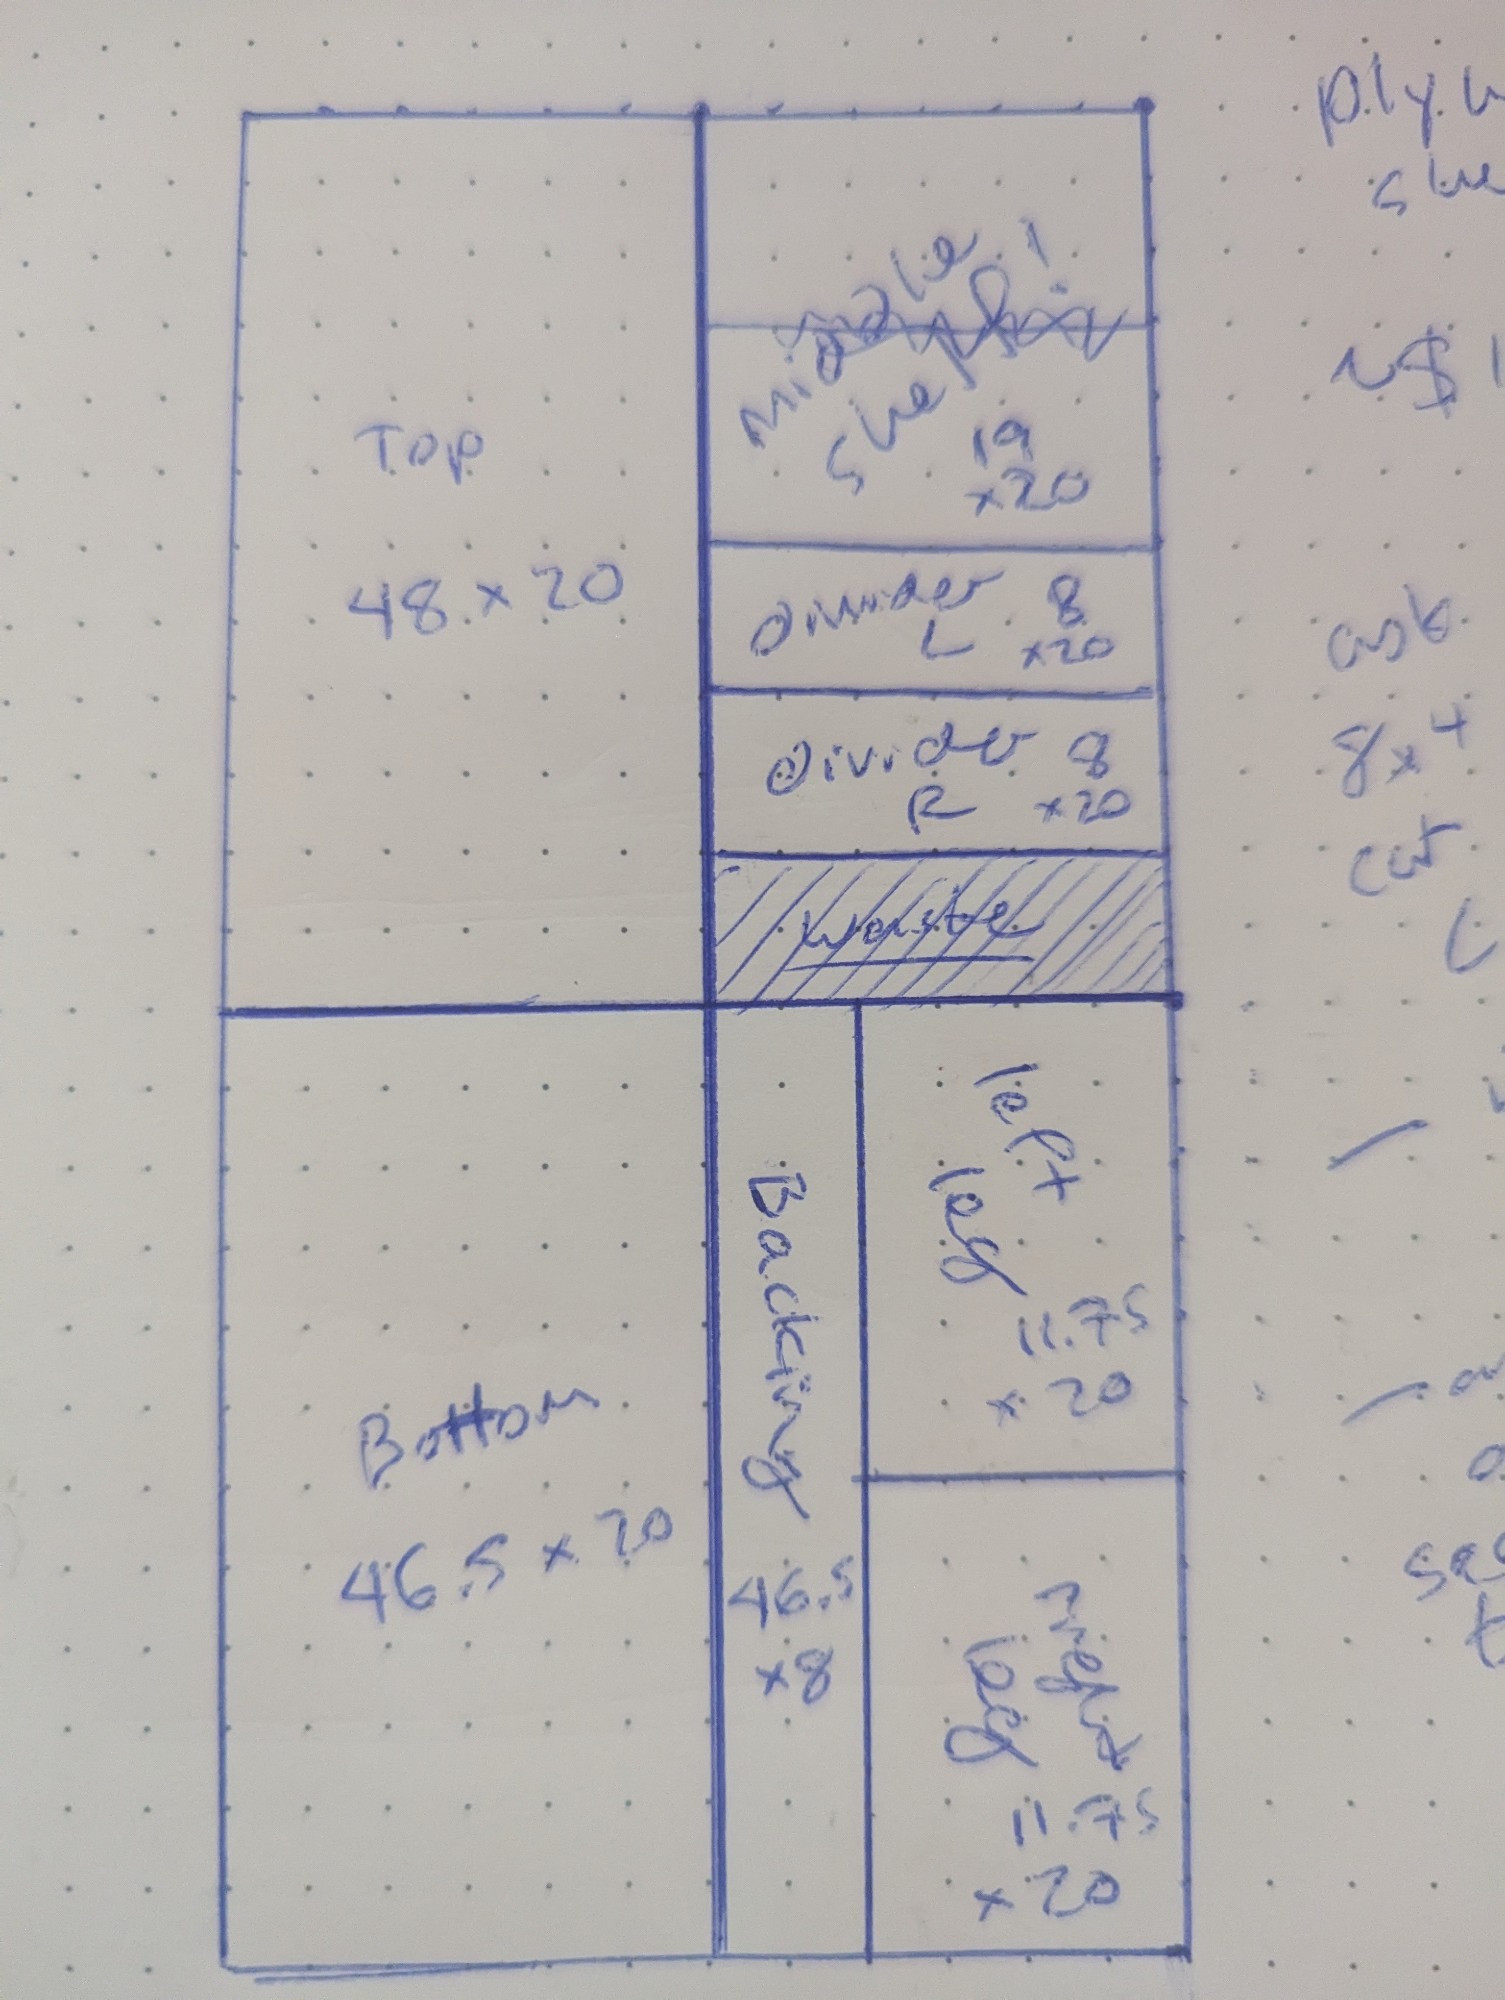 Top
48 x 20
middle
shelf!
19
x20
divider 8
L x20
divider 8
R x20
waste
Bottom
46.5 x 20
Backing 46.5
x8
left
leg 11.75
x 20
right
leg 11.75
x 20
ask
8x4
cut